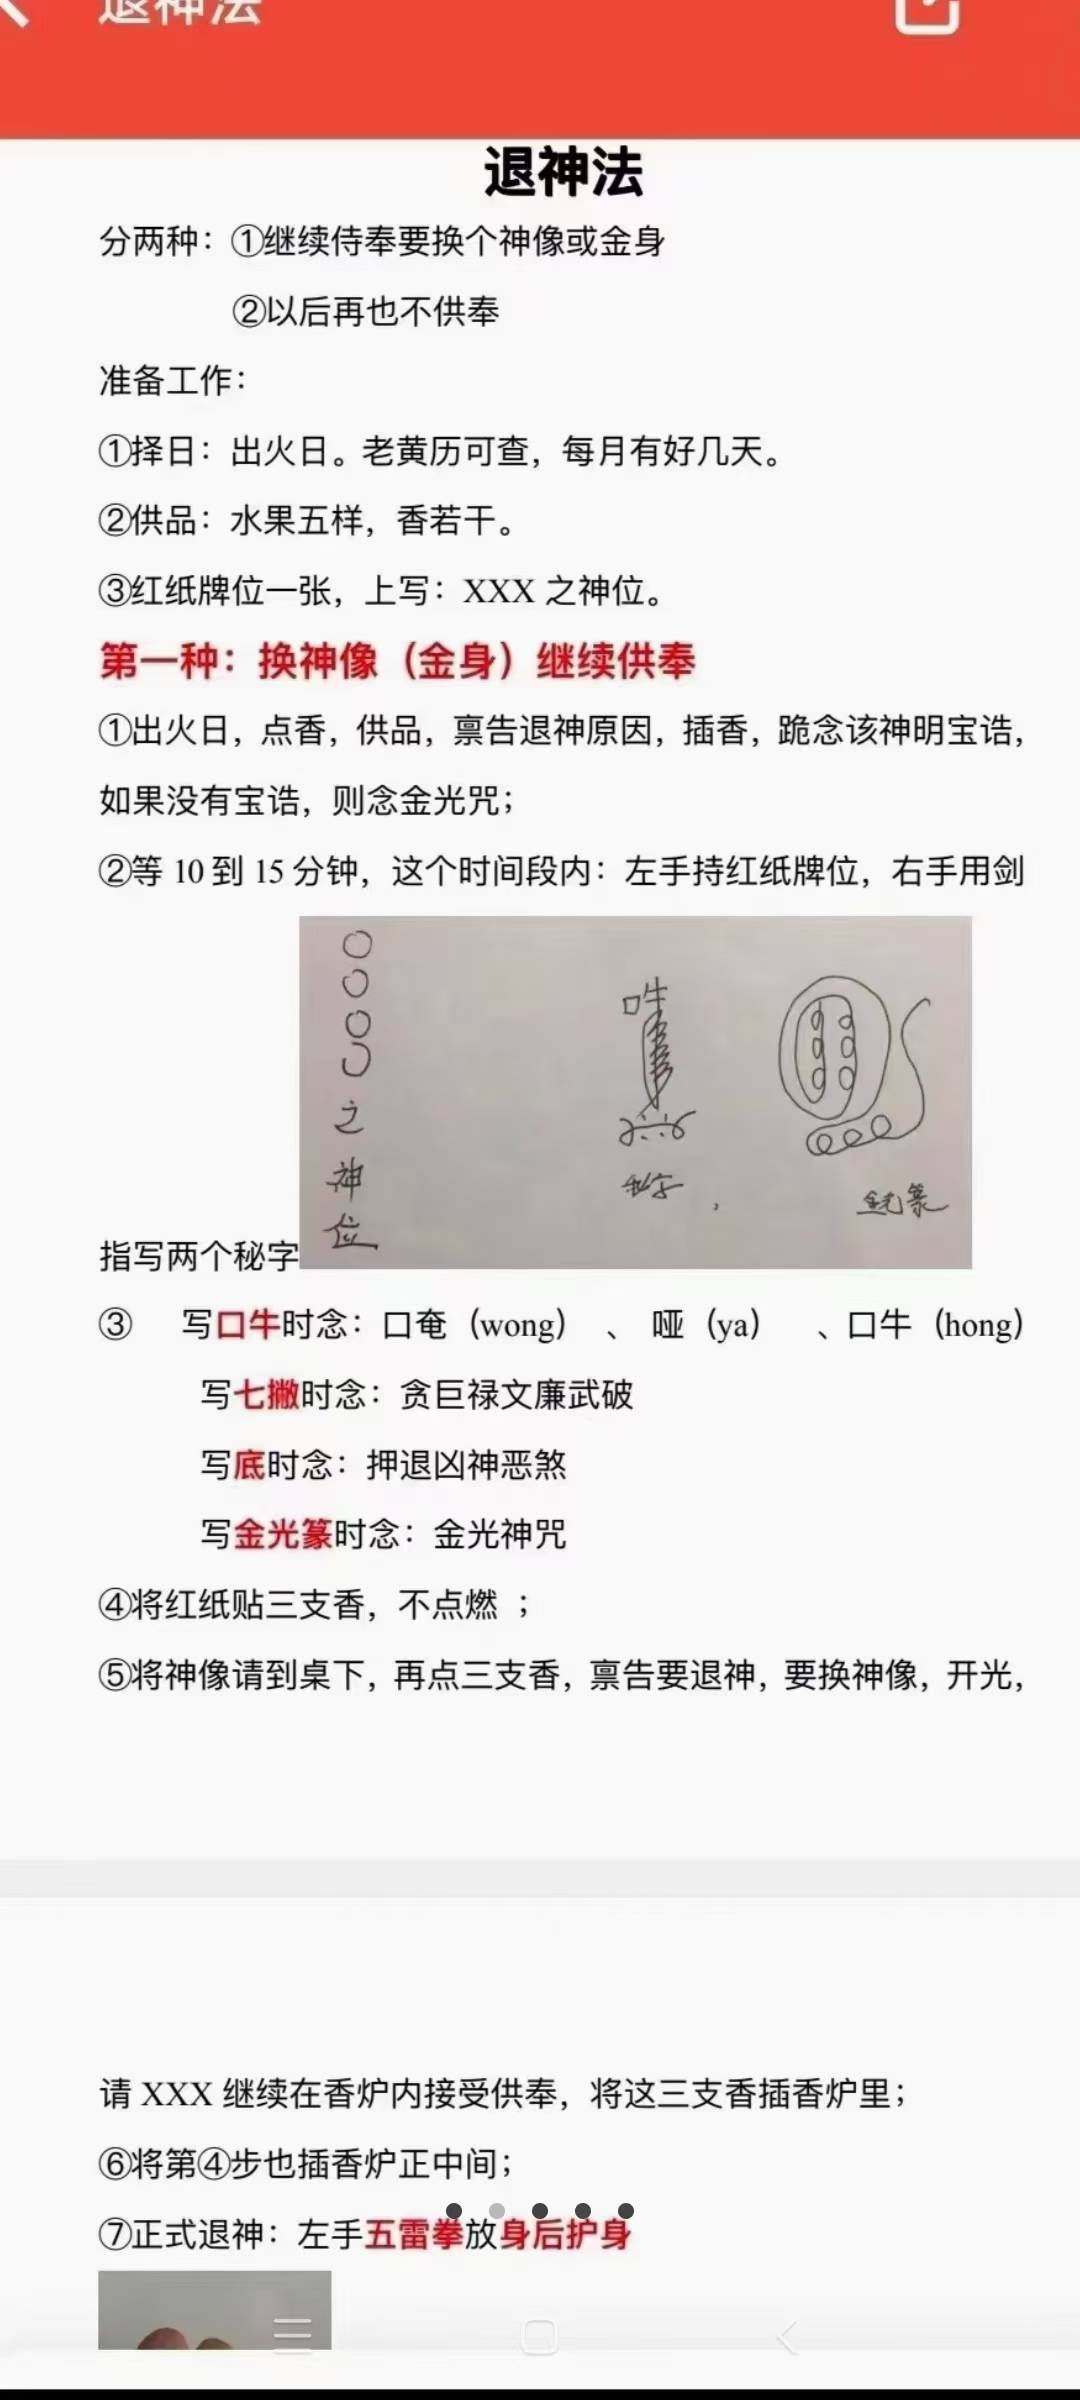 退神法
退神法
分两种：①继续侍奉要换个神像或金身
②以后再也不供奉
准备工作：
①择日：出火日。老黄历可查，每月有好几天。
②供品：水果五样，香若干。
③红纸牌位一张，上写：XXX 之神位。
第一种：换神像（金身）继续供奉
①出火日，点香，供品，禀告退神原因，插香，跪念该神明宝诰，
如果没有宝诰，则念金光咒；
②等 10 到 15 分钟，这个时间段内：左手持红纸牌位，右手用剑
〇〇〇〇之神位
口牛
秘字，
金光篆
指写两个秘字
③ 写口牛时念：口奄（wong）、哑（ya）、口牛（hong）
写七撇时念：贪巨禄文廉武破
写底时念：押退凶神恶煞
写金光篆时念：金光神咒
④将红纸贴三支香，不点燃；
⑤将神像请到桌下，再点三支香，禀告要退神，要换神像，开光，
请 XXX 继续在香炉内接受供奉，将这三支香插香炉里；
⑥将第④步也插香炉正中间；
⑦正式退神：左手五雷拳放身后护身